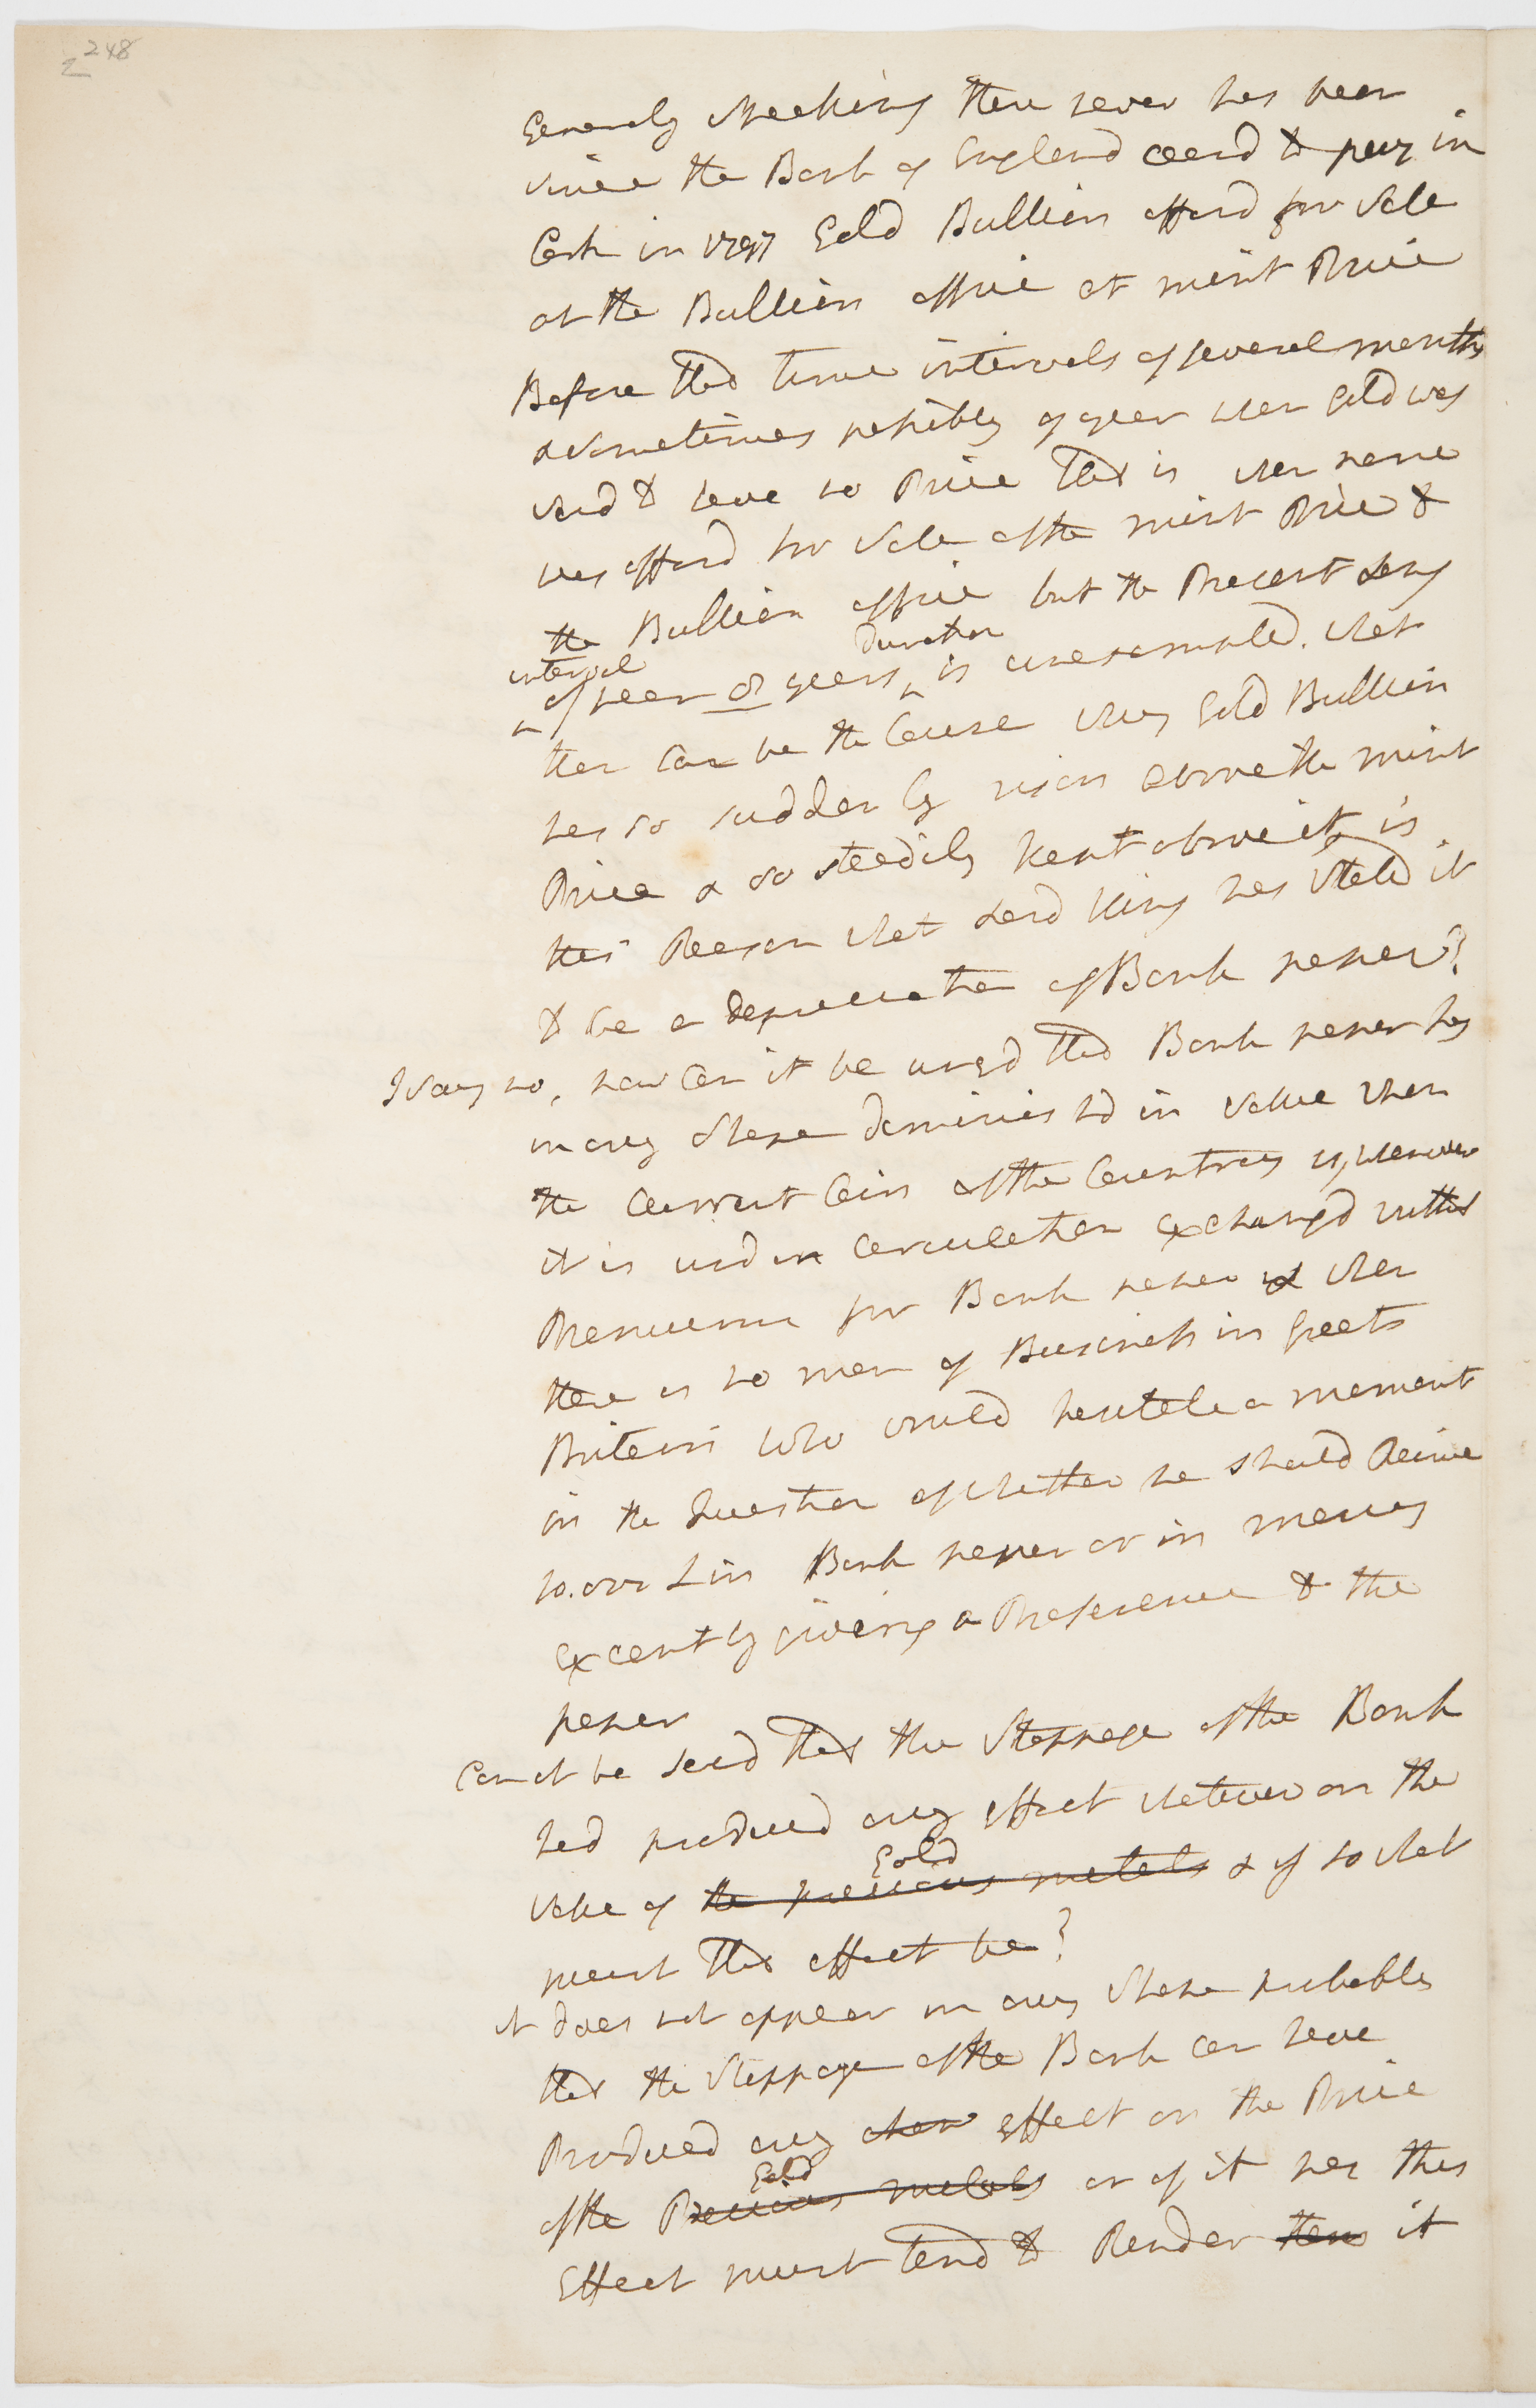 248
Generaly Speeking there never has been
since the Bank of England ceasd to pay in
Cash in 1797 Gold Bullion offerd for Sale
at the Bullion office at mint Price
Before that time intervals of several months
& sometimes possibly of a year when Gold was
said to have no Price that is when none
was offerd for Sale of the mint Price to
the Bullion office but the Present long
interval duration
of near 02 years is unexampled. what
then can be the Cause why Gold Bullion
has so suddenly risen above the mint
Price & so steedily kept above it is
this Reason what Lord King has Stated it
to be a depreciation of Bank paper?
I say no, how Can it be urgd that Bank paper has
in any shape diminishd in value when
the Current Coin of the Country is, whenever
it is usd in Circulation exchangd without
Premium for Bank paper & when
there is no man of Business in Great
Britain who would hesitate a moment
in the Question of whether he should Receive
10.000 £ in Bank paper or in money
except by giving a Preference to the
paper
Can it be said that the Stoppage of the Bank
had producd any effect whatever on the
Gold
value of the precious metals & if so what
must that effect be?
it does not appear in any Shape probable
that the Stoppage of the Bank can have
Producd any effect on the Price
Gold
of the Precious metals or if it has this
Effect must tend to Render them it